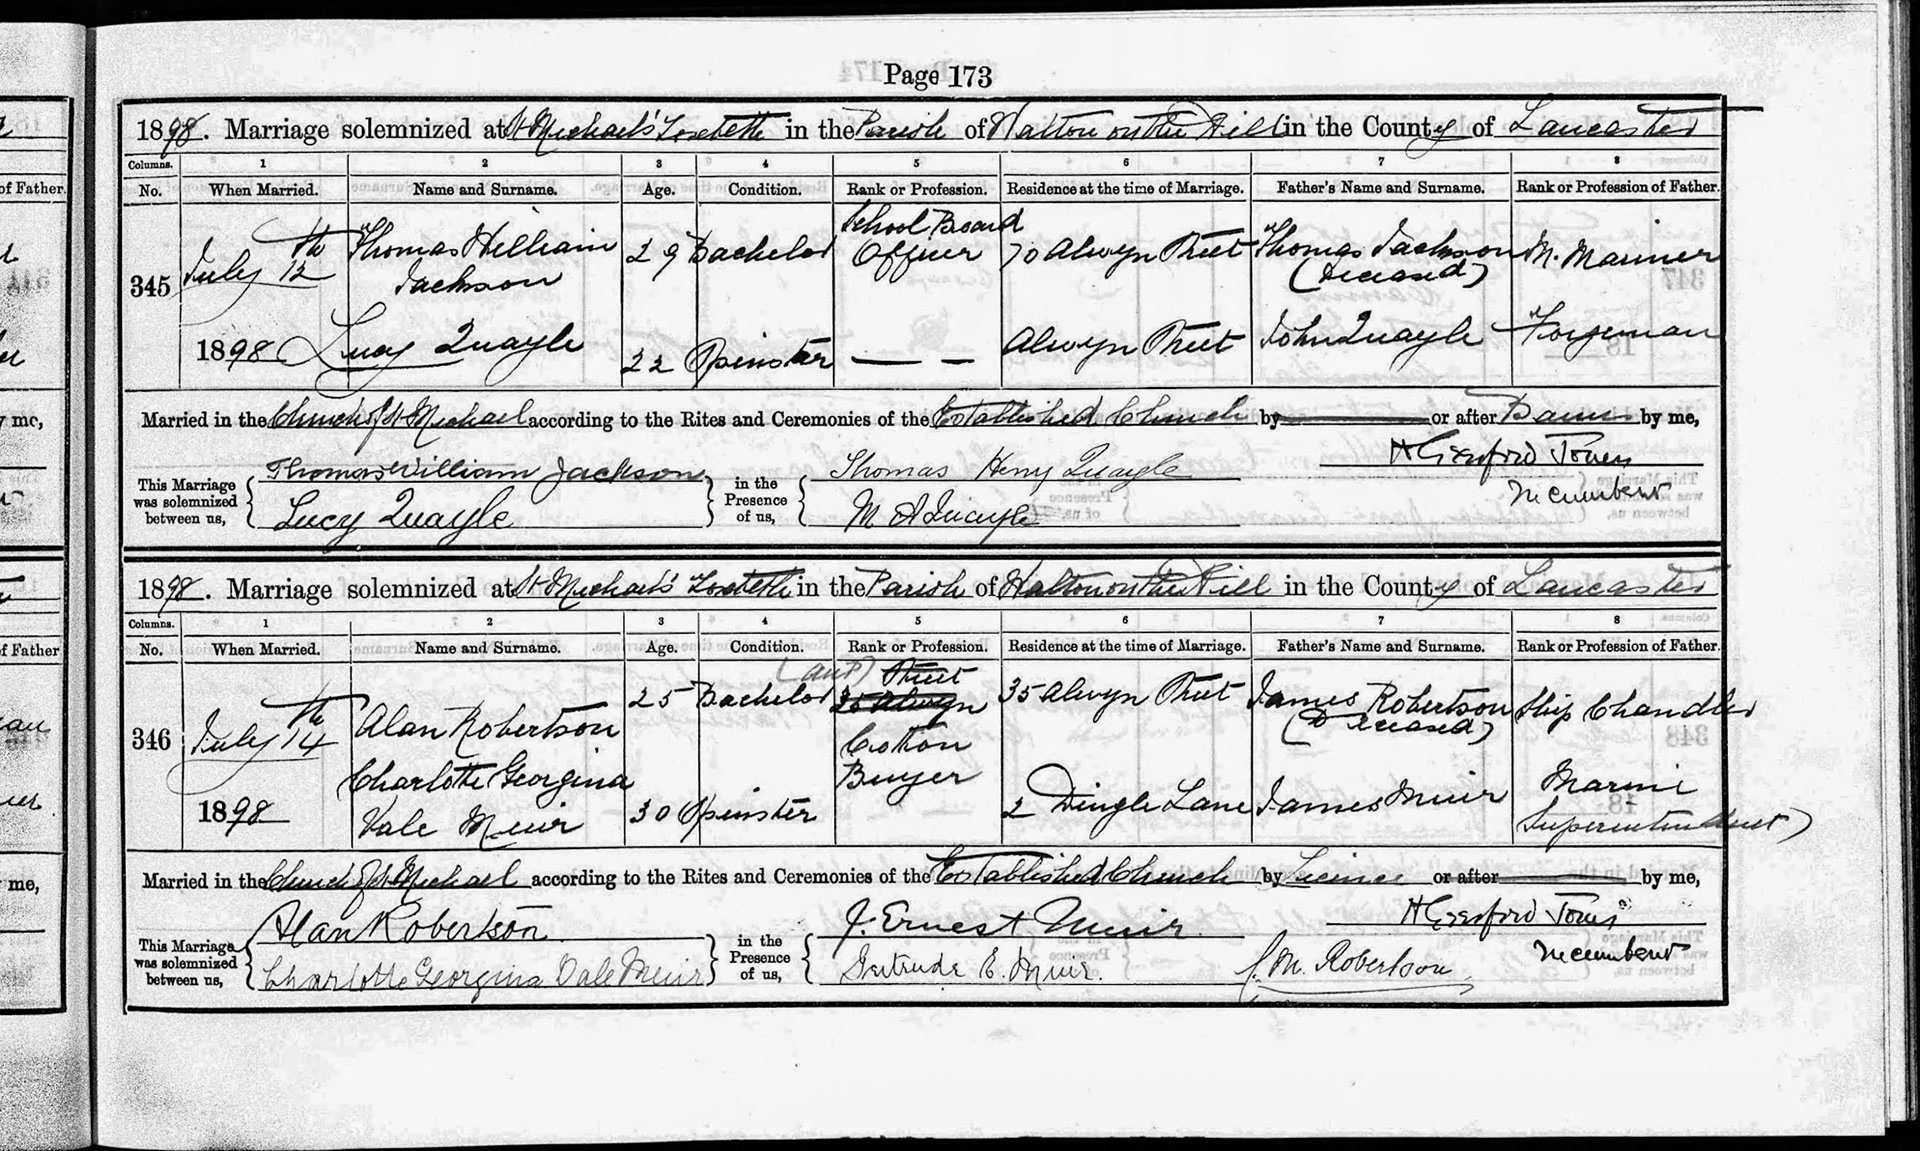 Page 173
1898. Marriage solemnized at St Michael's Toxteth in the Parish of Walton on the Hill in the County of Lancaster
Columns. 1 2 3 4 5 6 7 8
No. When Married. Name and Surname. Age. Condition. Rank or Profession. Residence at the time of Marriage. Father's Name and Surname. Rank or Profession of Father.
345 July 12th 1898 Thomas William Jackson 29 Bachelor School Board Officer 70 Alwyn Street Thomas Jackson (Deceased) M. Mariner
Lucy Quayle 22 Spinster — — Alwyn Street John Quayle Forgeman
Married in the Church of St Michael according to the Rites and Ceremonies of the Established Church by or after Banns by me,
This Marriage was solemnized between us, Thomas William Jackson Lucy Quayle in the Presence of us, Thomas Henry Quayle M A Quayle H Gresford Jones Incumbent
1898. Marriage solemnized at St Michael's Toxteth in the Parish of Walton on the Hill in the County of Lancaster
Columns. 1 2 3 4 5 6 7 8
No. When Married. Name and Surname. Age. Condition. Rank or Profession. Residence at the time of Marriage. Father's Name and Surname. Rank or Profession of Father.
346 July 14th 1898 Alan Robertson 25 Bachelor 35 Alwyn Street Cotton Buyer 35 Alwyn Street James Robertson (Deceased) Ship Chandler
Charlotte Georgina Vale Muir 30 Spinster 2 Dingle Lane James Muir Marine Superintendent
Married in the Church of St Michael according to the Rites and Ceremonies of the Established Church by Licence or after by me,
This Marriage was solemnized between us, Alan Robertson Charlotte Georgina Vale Muir in the Presence of us, J. Ernest Muir Gertrude E. Muir. J. M. Robertson H Gresford Jones Incumbent
of Father.
me,
of Father
me,